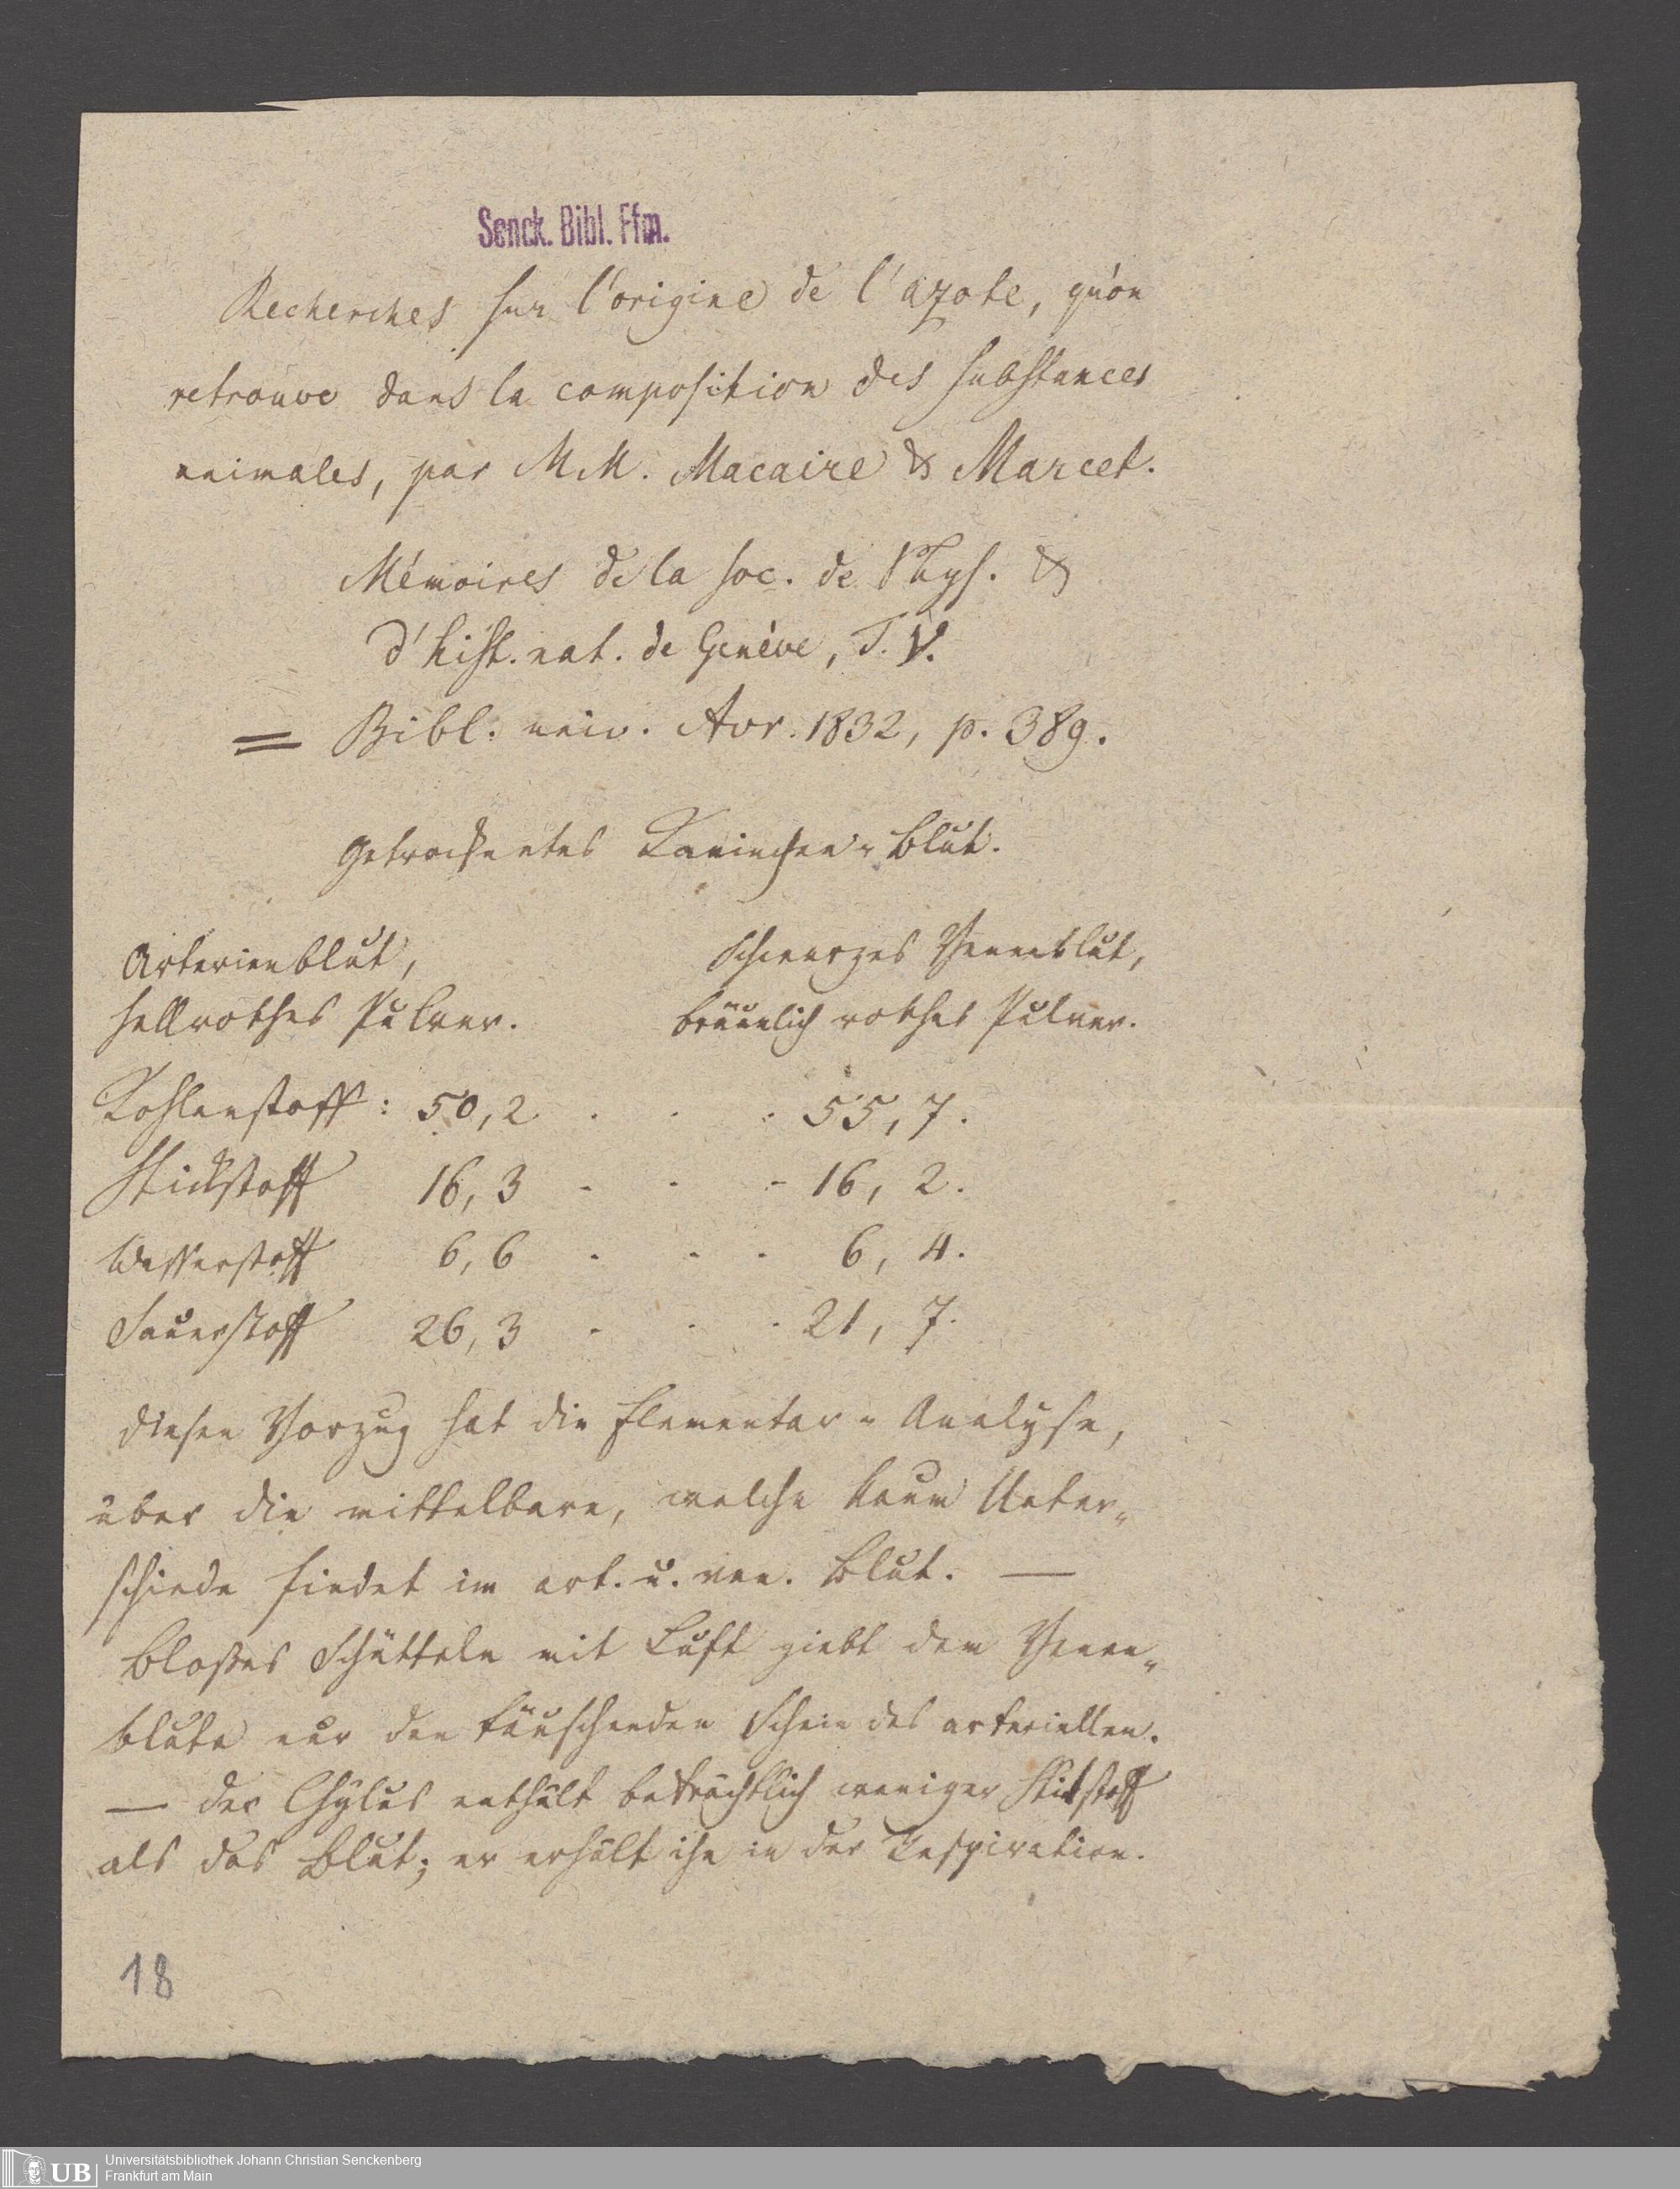 Senck. Bibl. Ffm.
Recherches sur l'origine de l'azote, qu'on
retrouve dans la composition des substances
animales, par M M. Macaire & Marcet.
Mémoires de la soc. de Phys. &
d'hist. nat. de Genève, T. V.
= Bibl. univ. Avr. 1832, p. 389.
Getrocknetes Kaninchen-Blut.
Arterienblut, schwarzes Venenblut,
hellrothes Pulver. bräunlich rothes Pulver.
Kohlenstoff: 50,2 . . . 55,7.
Stickstoff 16,3 - - - 16,2.
Wasserstoff 6,6 - - - 6,4.
Sauerstoff 26,3 - - - 21,7.
Diesen Vorzug hat die Elementar-Analyse,
über die mittelbare, welche kaum Unter-
schiede findet im art. u. ven. Blut. —
Bloßes Schütteln mit Luft giebt dem Venen-
blute nur den täuschenden Schein des arteriellen.
— Der Chylus enthält beträchtlich weniger Stickstoff
als das Blut; er erhält ihn in der Respiration.
18
UB
Universitätsbibliothek Johann Christian Senckenberg
Frankfurt am Main